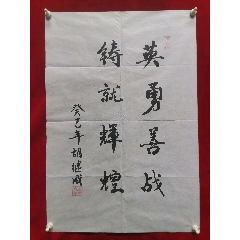 英勇善战
铸就辉煌
癸巳年胡继成